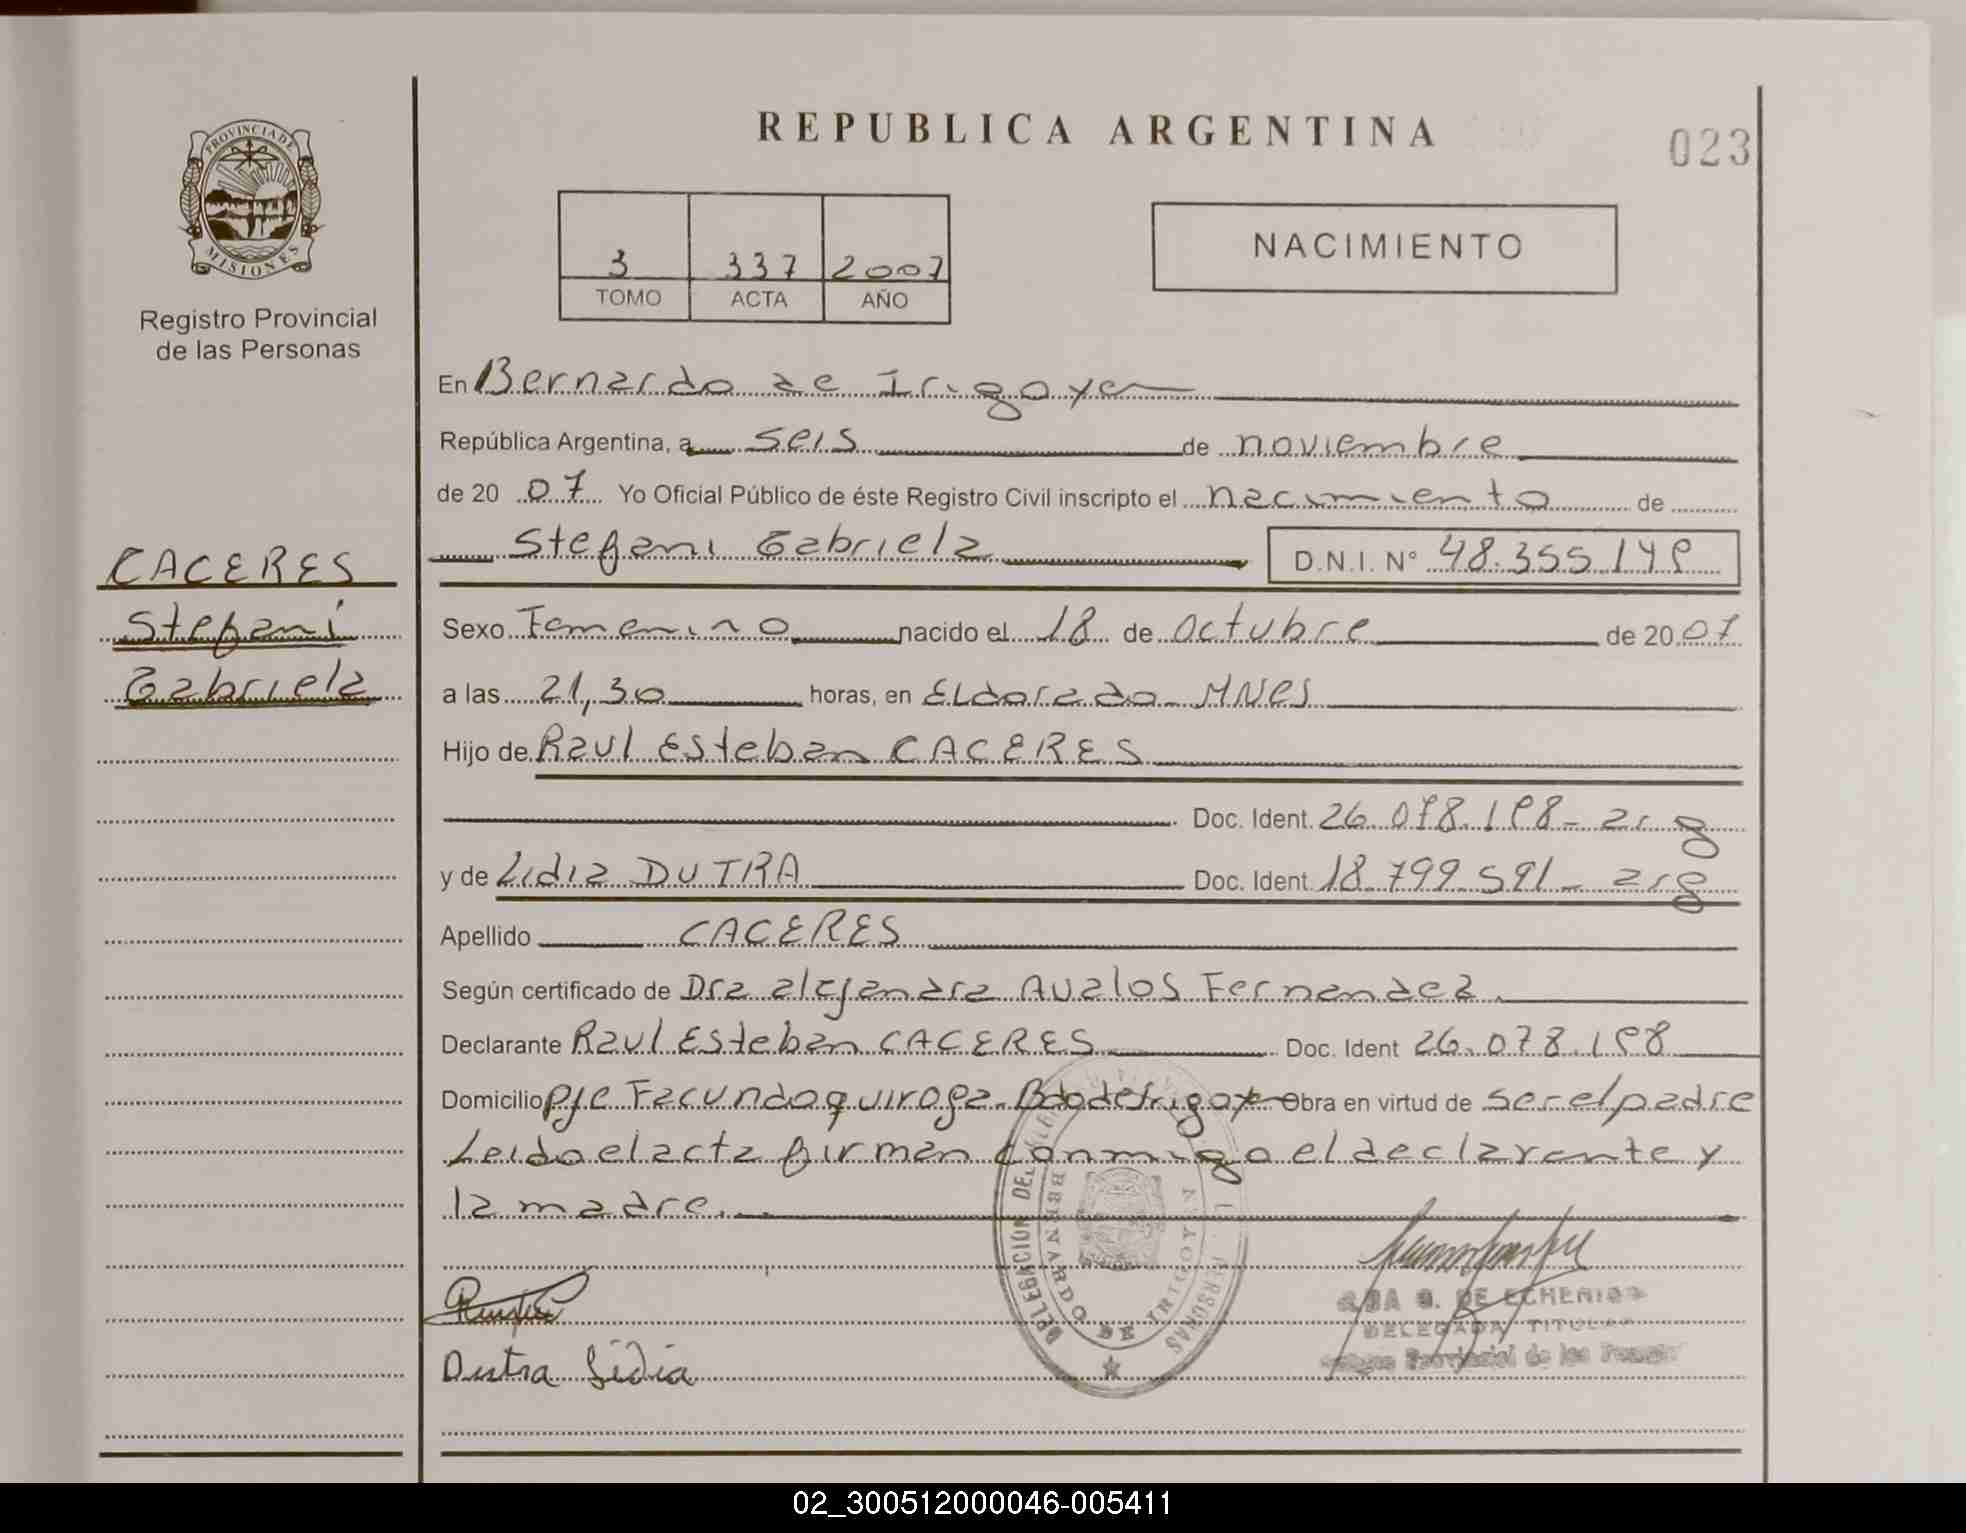 REPUBLICA ARGENTINA
023
PROVINCIA DE
MISIONES
Registro Provincial
de las Personas
3 337 2007
TOMO ACTA AÑO
NACIMIENTO
CACERES
Stefani
Gabriela
En Bernardo de Irigoyen
República Argentina, a seis de noviembre
de 20 07 Yo Oficial Público de éste Registro Civil inscripto el nacimiento de
Stefani Gabriela D.N.I. Nº 48.355.149
Sexo Femenino nacido el 18 de octubre de 20 07
a las 21,30 horas, en Eldorado MNES
Hijo de Raul Esteban CACERES
Doc. Ident. 26.078.198- arg
y de Lidia DUTRA Doc. Ident. 18.799.591- arg
Apellido CACERES
Según certificado de Dra alejandra Avalos Fernandez.
Declarante Raul Esteban CACERES Doc. Ident 26.078.198
Domicilio Pje Facundo quiroga. Bdo de Irigoyen Obra en virtud de ser el padre
Leido el acta firman conmigo el declarante y
la madre...
DELEGACION DEL PERSONAS
BERNARDO DE IRIGOYEN
DE ECHENIQUE
DELEGADA TITULAR
Provincial de las
Dutra Lidia
02_300512000046-005411